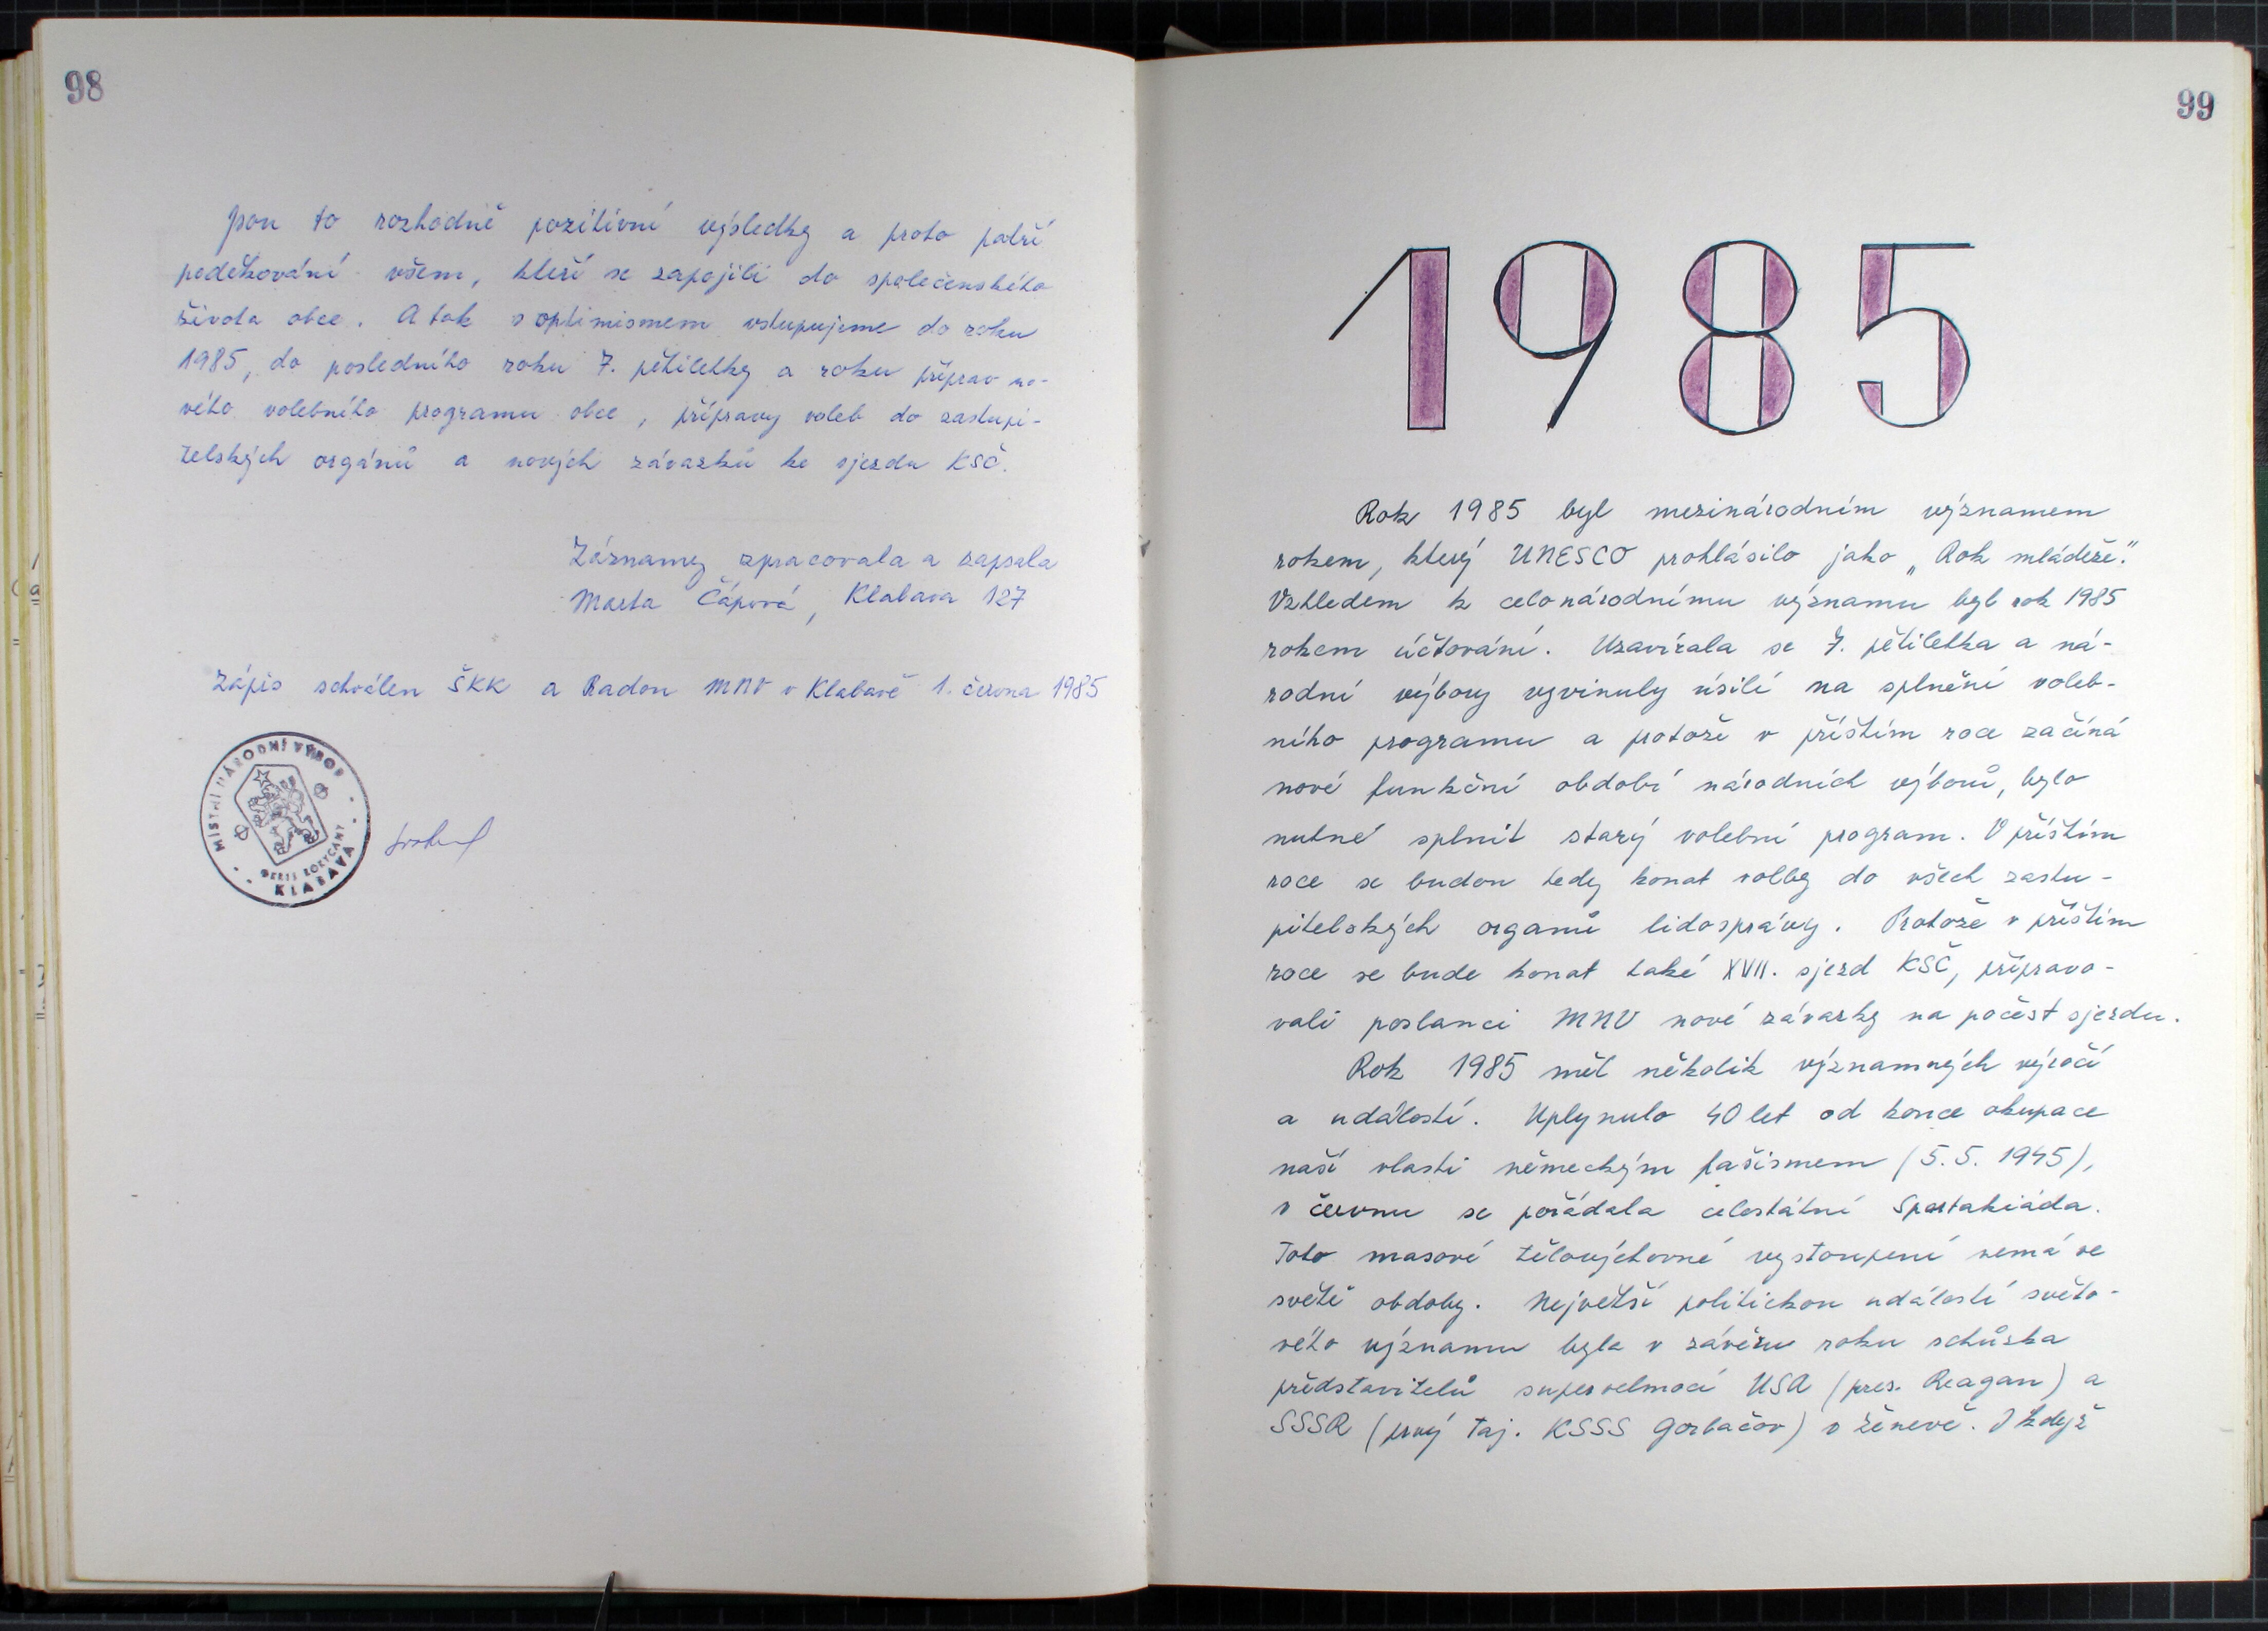 98
Jsou to rozhodně pozitivní výsledky a proto patří
poděkování všem, kteří se zapojili do společenského
života obce. A tak s optimismem vstupujeme do roku
1985, do posledního roku 7. pětiletky a roku příprav no-
vého volebního programu obce, přípravy voleb do zastupi-
telských orgánů a nových závazků ke sjezdu KSČ.
Záznamy zpracovala a zapsala
Marta Čápová, Klabava 127
Zápis schválen ŠKK a Radou MNV v Klabavě 1. června 1985
MÍSTNÍ NÁRODNÍ VÝBOR
OKRES ROKYCANY
KLABAVA
99
1985
Rok 1985 byl mezinárodním významem
rokem, který UNESCO prohlásilo jako „Rok mládeže".
Vzhledem k celonárodnímu významu byl rok 1985
rokem účtování. Uzavírala se 7. pětiletka a ná-
rodní výbory vyvinuly úsilí na splnění voleb-
ního programu a protože v příštím roce začíná
nové funkční období národních výborů, bylo
nutné splnit starý volební program. V příštím
roce se budou tedy konat volby do všech zastu-
pitelských orgánů lidosprávy. Protože v příštím
roce se bude konat také XVII. sjezd KSČ, připravo-
vali poslanci MNV nové závazky na počest sjezdu.
Rok 1985 měl několik významných výročí
a událostí. Uplynulo 40 let od konce okupace
naší vlasti německým fašismem (5.5. 1945),
v červnu se pořádala celostátní Spartakiáda.
Toto masové tělovýchovné vystoupení nemá ve
světě obdoby. Největší politickou událostí světo-
vého významu byla v závěru roku schůzka
představitelů supervelmocí USA (pres. Reagan) a
SSSR (prvý taj. KSSS Gorbačov) v Ženevě. I když